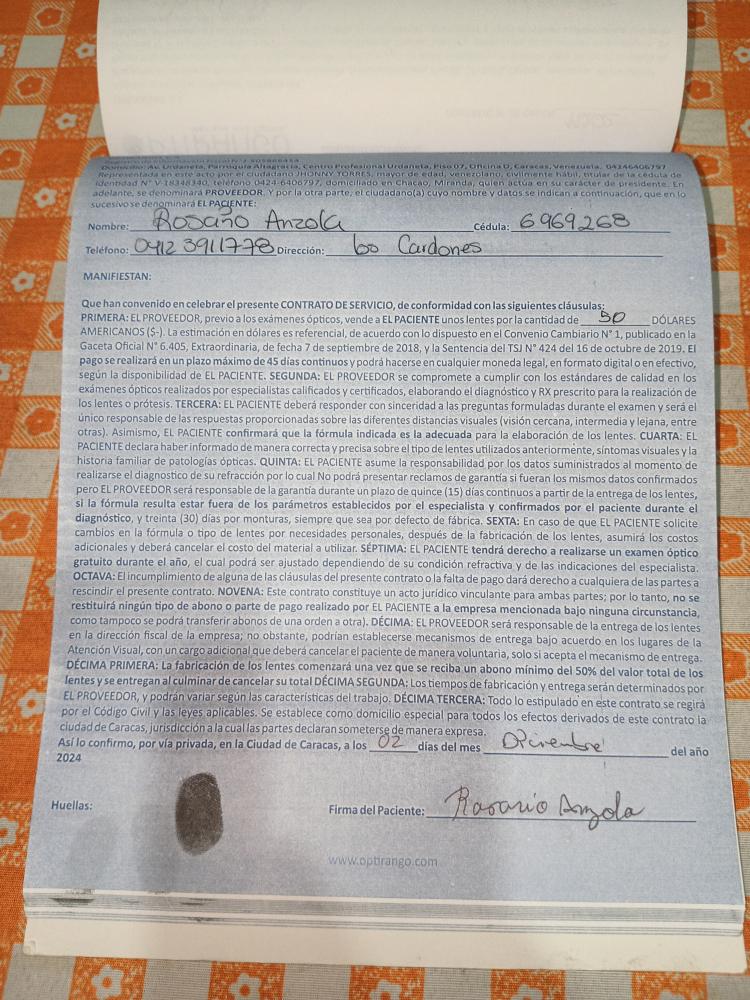 Domicilio: Av. Urdaneta, Parroquia Altagracia, Centro Profesional Urdaneta, Piso 07, Oficina D, Caracas, Venezuela. 04246406797
Representada en este acto por el ciudadano JHONNY TORRES, mayor de edad, venezolano, civilmente hábil, titular de la cédula de
identidad N° V-18348340, teléfono 0424-6406797, domiciliado en Chacao, Miranda, quien actúa en su carácter de presidente. En
adelante, se denominará PROVEEDOR. Y por la otra parte, el ciudadano(a) cuyo nombre y datos se indican a continuación, que en lo
sucesivo se denominará EL PACIENTE:
Nombre: Rosario Anzola Cédula: 6969268
Teléfono: 0412 3911778 Dirección: los Cardones
MANIFIESTAN:
Que han convenido en celebrar el presente CONTRATO DE SERVICIO, de conformidad con las siguientes cláusulas:
PRIMERA: EL PROVEEDOR, previo a los exámenes ópticos, vende a EL PACIENTE unos lentes por la cantidad de 50 DÓLARES
AMERICANOS ($-). La estimación en dólares es referencial, de acuerdo con lo dispuesto en el Convenio Cambiario N° 1, publicado en la
Gaceta Oficial N° 6.405, Extraordinaria, de fecha 7 de septiembre de 2018, y la Sentencia del TSJ N° 424 del 16 de octubre de 2019. El
pago se realizará en un plazo máximo de 45 días continuos y podrá hacerse en cualquier moneda legal, en formato digital o en efectivo,
según la disponibilidad de EL PACIENTE. SEGUNDA: EL PROVEEDOR se compromete a cumplir con los estándares de calidad en los
exámenes ópticos realizados por especialistas calificados y certificados, elaborando el diagnóstico y RX prescrito para la realización de
los lentes o prótesis. TERCERA: EL PACIENTE deberá responder con sinceridad a las preguntas formuladas durante el examen y será el
único responsable de las respuestas proporcionadas sobre las diferentes distancias visuales (visión cercana, intermedia y lejana, entre
otras). Asimismo, EL PACIENTE confirmará que la fórmula indicada es la adecuada para la elaboración de los lentes. CUARTA: EL
PACIENTE declara haber informado de manera correcta y precisa sobre el tipo de lentes utilizados anteriormente, síntomas visuales y la
historia familiar de patologías ópticas. QUINTA: EL PACIENTE asume la responsabilidad por los datos suministrados al momento de
realizarse el diagnostico de su refracción por lo cual No podrá presentar reclamos de garantía si fueran los mismos datos confirmados
pero EL PROVEEDOR será responsable de la garantía durante un plazo de quince (15) días continuos a partir de la entrega de los lentes,
si la fórmula resulta estar fuera de los parámetros establecidos por el especialista y confirmados por el paciente durante el
diagnóstico, y treinta (30) días por monturas, siempre que sea por defecto de fábrica. SEXTA: En caso de que EL PACIENTE solicite
cambios en la fórmula o tipo de lentes por necesidades personales, después de la fabricación de los lentes, asumirá los costos
adicionales y deberá cancelar el costo del material a utilizar. SÉPTIMA: EL PACIENTE tendrá derecho a realizarse un examen óptico
gratuito durante el año, el cual podrá ser ajustado dependiendo de su condición refractiva y de las indicaciones del especialista.
OCTAVA: El incumplimiento de alguna de las cláusulas del presente contrato o la falta de pago dará derecho a cualquiera de las partes a
rescindir el presente contrato. NOVENA: Este contrato constituye un acto jurídico vinculante para ambas partes; por lo tanto, no se
restituirá ningún tipo de abono o parte de pago realizado por EL PACIENTE a la empresa mencionada bajo ninguna circunstancia,
como tampoco se podrá transferir abonos de una orden a otra). DÉCIMA: EL PROVEEDOR será responsable de la entrega de los lentes
en la dirección fiscal de la empresa; no obstante, podrían establecerse mecanismos de entrega bajo acuerdo en los lugares de la
Atención Visual, con un cargo adicional que deberá cancelar el paciente de manera voluntaria, solo si acepta el mecanismo de entrega.
DÉCIMA PRIMERA: La fabricación de los lentes comenzará una vez que se reciba un abono mínimo del 50% del valor total de los
lentes y se entregan al culminar de cancelar su total DÉCIMA SEGUNDA: Los tiempos de fabricación y entrega serán determinados por
EL PROVEEDOR, y podrán variar según las características del trabajo. DÉCIMA TERCERA: Todo lo estipulado en este contrato se regirá
por el Código Civil y las leyes aplicables. Se establece como domicilio especial para todos los efectos derivados de este contrato la
ciudad de Caracas, jurisdicción a la cual las partes declaran someterse de manera expresa.
Así lo confirmo, por vía privada, en la Ciudad de Caracas, a los 02 días del mes Diciembre del año
2024
Huellas:
Firma del Paciente: Rosario Anzola
www.optirango.com